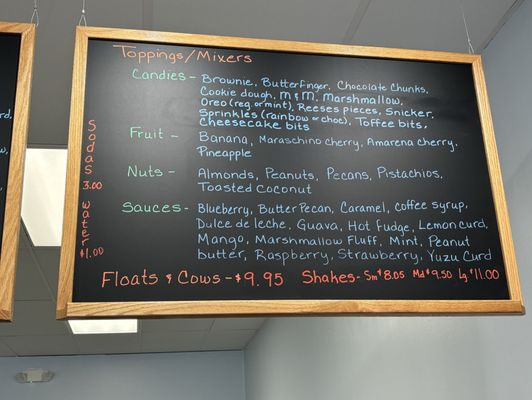 Toppings/Mixers
Candies - Brownie, Butterfinger, Chocolate Chunks,
Cookie dough, M & M, Marshmallow,
Oreo (reg. or mint), Reeses pieces, Snicker,
Sprinkles (rainbow or choc), Toffee bits,
Cheesecake bits
Fruit - Banana, Maraschino cherry, Amarena cherry,
Pineapple
Nuts - Almonds, Peanuts, Pecans, Pistachios,
Toasted Coconut
Sauces - Blueberry, Butter Pecan, Caramel, coffee syrup,
Dulce de leche, Guava, Hot Fudge, Lemon curd,
Mango, Marshmallow Fluff, Mint, Peanut
butter, Raspberry, Strawberry, Yuzu Curd
Floats & Cows - $9.95 Shakes - Sm $8.05 Md $9.50 Lg $11.00
Sodas
3.00
water
$1.00